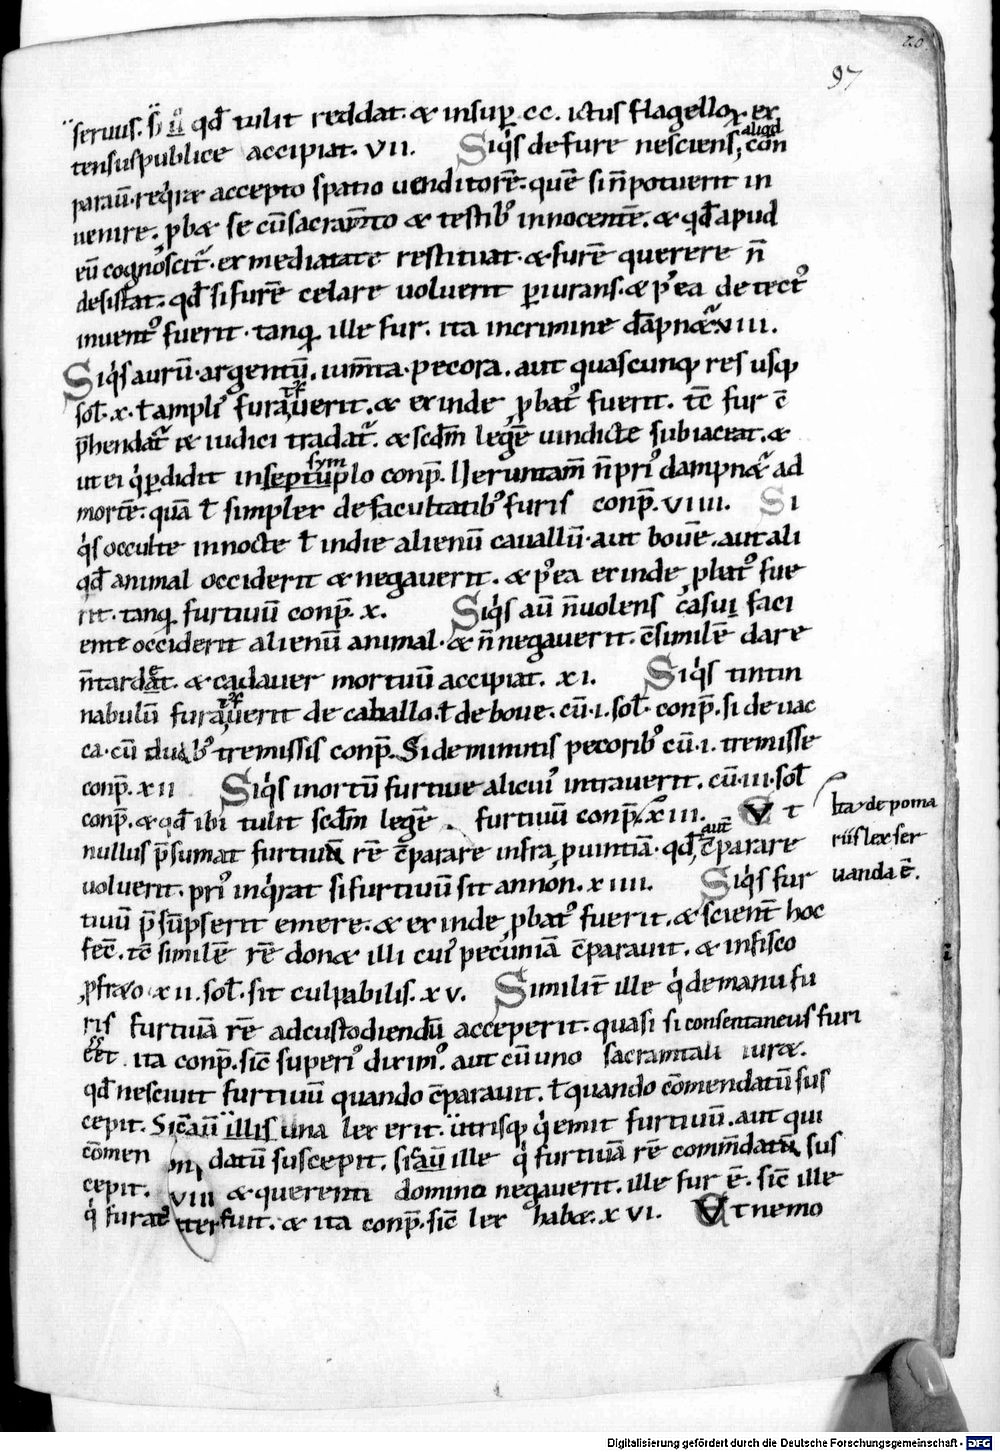 20
97
seruus. s; ii qđ tulit reddat. & insup̱ cc. ictus flagelloꝝ. ex
tensus publice accipiat. vii. Siq̇s de fure nesciens, aliqd con
parau̅. req̇ræ accepto spatio uenditore̅. que̅ si n̅ potuerit in
uenire. ꝓbæ se cu̅ sacram̅to & testib; innocente̅. & qđ apud
eu̅ cognoscit᷑. ex medietate restituat. & fure̅ querere n̅
desistat. qđ si fure̅ celare uoluerit ꝑiurans. & p᾽ea detect᾽
inuent᾽ fuerit. tanq̨ ille fur. ita in crimine da̅pnæ᷑. viii.
Siq̇s auru̅. argentu̅. ium̅ta. pecora. aut quascunq; res usq;
sol̅. x. ł ampli᾽ furauerit. & exinde ꝓbat᾽ fuerit. tc̅ fur e̅
p̅hendat᷑ & iudici tradat᷑. & scd̅m lege̅ uindicte subiaceat. &
ut ei q̇ perdidit in septuplo sym conp̅. Ueruntam̅ n̅ pri᾽ dampnæ᷑ ad
morte̅. qua̅ ł simpler de facultatib; furis conp̅. viiii. Si
q̇s occulte in nocte ł in die alienu̅ cauallu̅. aut boue̅. aut ali
qđ animal occiderit & negauerit. & p᾽ea exinde ꝓbat᾽ fue
rit. tanq̨ furtiuu̅ conp̅. x. Siq̇s au̅ n̅ uolens casu faci
ente occiderit alienu̅ animal. & n̅ negauerit. c̅simile̅ dare
n̅ tardæt. & cadauer mortuu̅ accipiat. xi. Siq̇s tintin
nabulu̅ furauerit de caballo. ł de boue. cu̅. i. sol̅. conp̅. si de uac
ca. cu̅ duab; tremissis conp̅. Si de minutis pecorib; cu̅. i. tremisse
conp̅. xii Siq̇s in ortu̅ furtiue alicui᾽ intrauerit. cu̅. iii. sol̅
conp̅. & qđ ibi tulit scd̅m lege̅. furtiuu̅ conp̅. xiii. Ut
lita, de poma
nullus p̅sumat furtiua̅ re̅ c̅parare infra ꝓuintia̅. qđ aut̅ c̅parare
riis lex ser
uoluerit. pri᾽ inq̇rat si furtiuu̅ sit an non. xiiii. Siq̇s fur
uanda e̅.
tiuu̅ p̅su̅pserit emere. & exinde ꝓbat᾽ fuerit. & scient̅ hoc
fec̅. tc̅ simile̅ re̅ donæ illi cui᾽ pecunia̅ c̅parauit. & in fisco
ꝓ fræo xii. sol̅. sit culpabilis. xv. Similit̅ ille q̇ de manu fu
ris furtiua̅ re̅ ad custodiendu̅ acceperit. quasi si consentaneus furi
e̅et. ita conp̅. sic̅ superi᾽ dixim᾽. aut cu̅ uno sacramtali iuræ.
qđ nesciuit furtiuu̅ quando c̅parauit. ł quando co̅mendatu̅ sus
cepit. Sic̅ au̅ illis una lex erit. utrisq; q̇ emit furtiuu̅. aut qui
co̅men datu̅ suscepit. si au̅ ille q̇ furtiua̅ re̅ comm̅datu̅ sus
cepit. & querenti domino negauerit. ille fur e̅. sic̅ ille
q̇ furat᾽ fuit. & ita conp̅. sic̅ lex habæ. xvi. Ut nemo
Digitalisierung gefördert durch die Deutsche Forschungsgemeinschaft - DFG